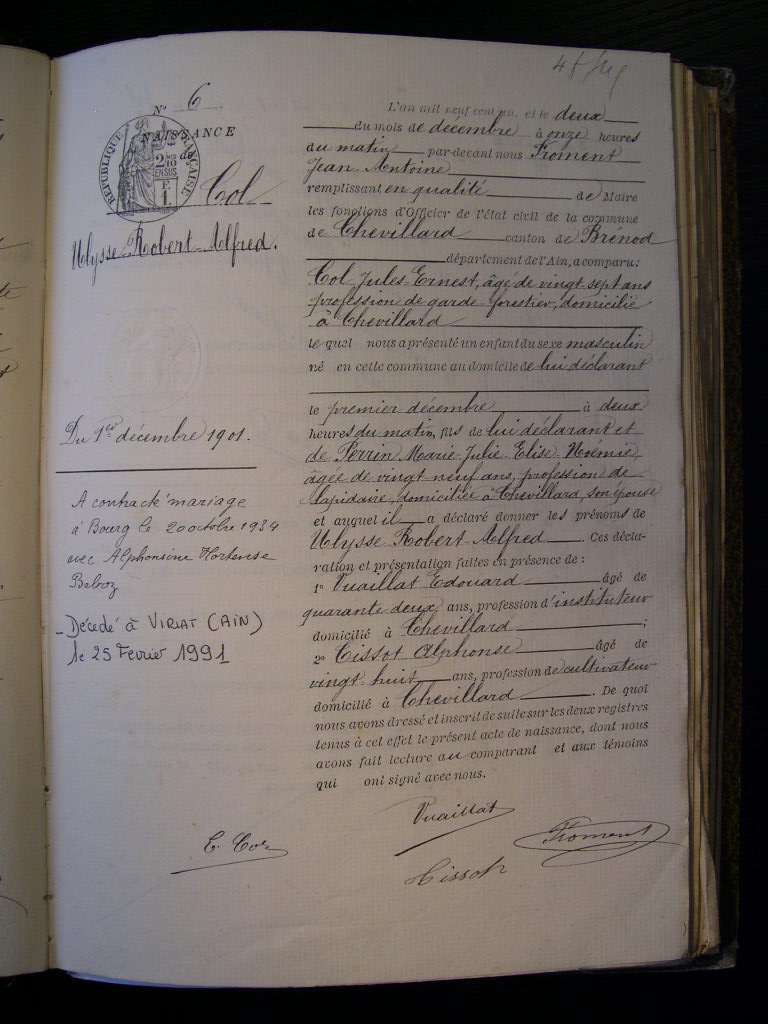 N° 6
NAISSANCE
de
RÉPUBLIQUE FRANÇAISE
2/10 EN SUS
1 F.
Col
Ulysse Robert-Alfred.
Du 1er décembre 1901.
A contracté mariage
à Bourg le 20 octobre 1934
avec Alphonsine Hortense
Décédé à VIRIAT (AIN)
le 25 Février 1991
L'an mil neuf cent un, et le deux
du mois de décembre à onze heures
du matin par-devant nous Froment
Jean Antoine
remplissant en qualité de Maire
les fonctions d'Officier de l'état civil de la commune
de Chevillard canton de Brénod
département de l'Ain, a comparu:
Col Jules-Ernest, âgé de vingt-sept ans
profession de garde forestier, domicilié
à Chevillard
le quel nous a présenté un enfant du sexe masculin
né en cette commune au domicile de lui déclarant
le premier décembre à deux
heures du matin, fils de lui déclarant et
de Perrin Marie-Julie Elise-Noémie,
âgée de vingt neuf ans, profession de
lapidaire, domiciliée à Chevillard, son épouse
et auquel il a déclaré donner les prénoms de
Ulysse Robert-Alfred. Ces décla-
ration et présentation faites en présence de :
1° Vuaillat Edouard âgé de
quarante deux ans, profession d'instituteur
domicilié à Chevillard ;
2° Tissot Alphonse âgé de
vingt huit ans, profession de cultivateur
domicilié à Chevillard. De quoi
nous avons dressé et inscrit de suite sur les deux registres
tenus à cet effet le présent acte de naissance, dont nous
avons fait lecture au comparant et aux témoins
qui ont signé avec nous.
Vuaillat
Froment
E. Col
Tissot